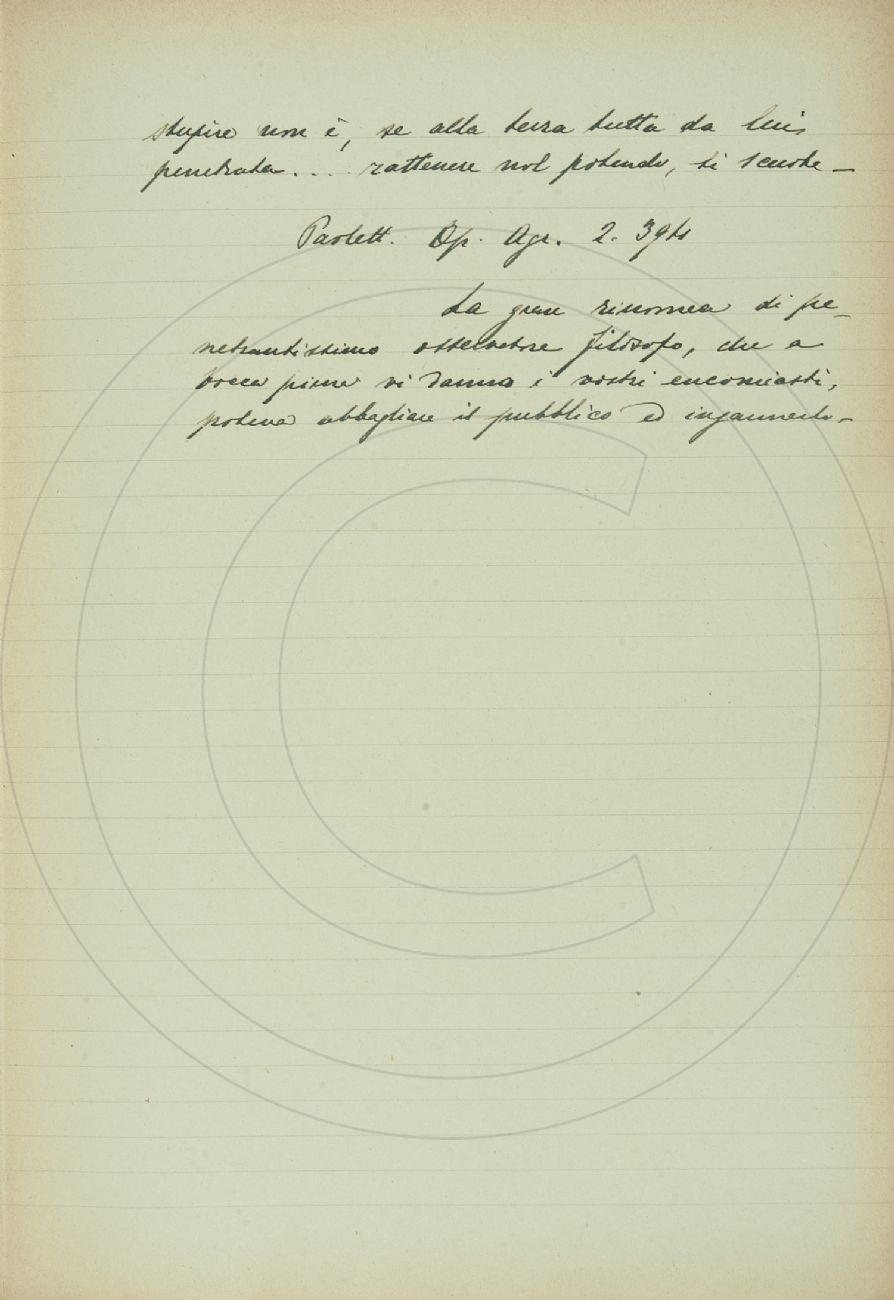 stupire non è, se alla terra tutta da lui
penetrata.... rattenere nol potendo, si scuote_
Paolett. Op. Agr. 2. 394
La gran rinomea di pe_
netrantissimo osservatore filosofo, che a
bocca piena vi danno i vostri encomiasti,
poteva abbagliare il pubblico ed ingannarlo_